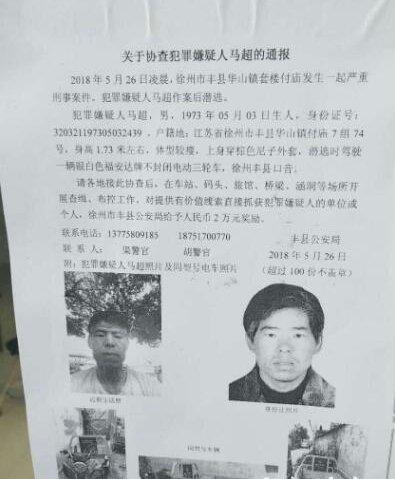 关于协查犯罪嫌疑人马超的通报
2018年5月26日凌晨，徐州市丰县华山镇套楼付庙发生一起严重
刑事案件。犯罪嫌疑人马超作案后潜逃。
犯罪嫌疑人马超，男，1973年05月03日生人，身份证号：
320321197305032439，户籍地：江苏省徐州市丰县华山镇付庙7组74
号，身高1.73米左右，体型较瘦，上身穿棕色尼子外套，潜逃时驾驶
一辆银白色福安达牌不封闭电动三轮车，徐州丰县口音。
请各地接此协查后，在车站、码头、旅馆、桥梁、涵洞等场所开
展查缉、布控工作。对提供有价值线索直接抓获犯罪嫌疑人的单位或
个人，徐州市丰县公安局给予人民币2万元奖励。
联系电话：13775809185 18751700770 丰县公安局
联系人：渠警官 胡警官 2018年5月26日
附：犯罪嫌疑人马超照片及同型号电车照片 （超过100份不盖章）
近期生活照
身份证照片
同型号车辆